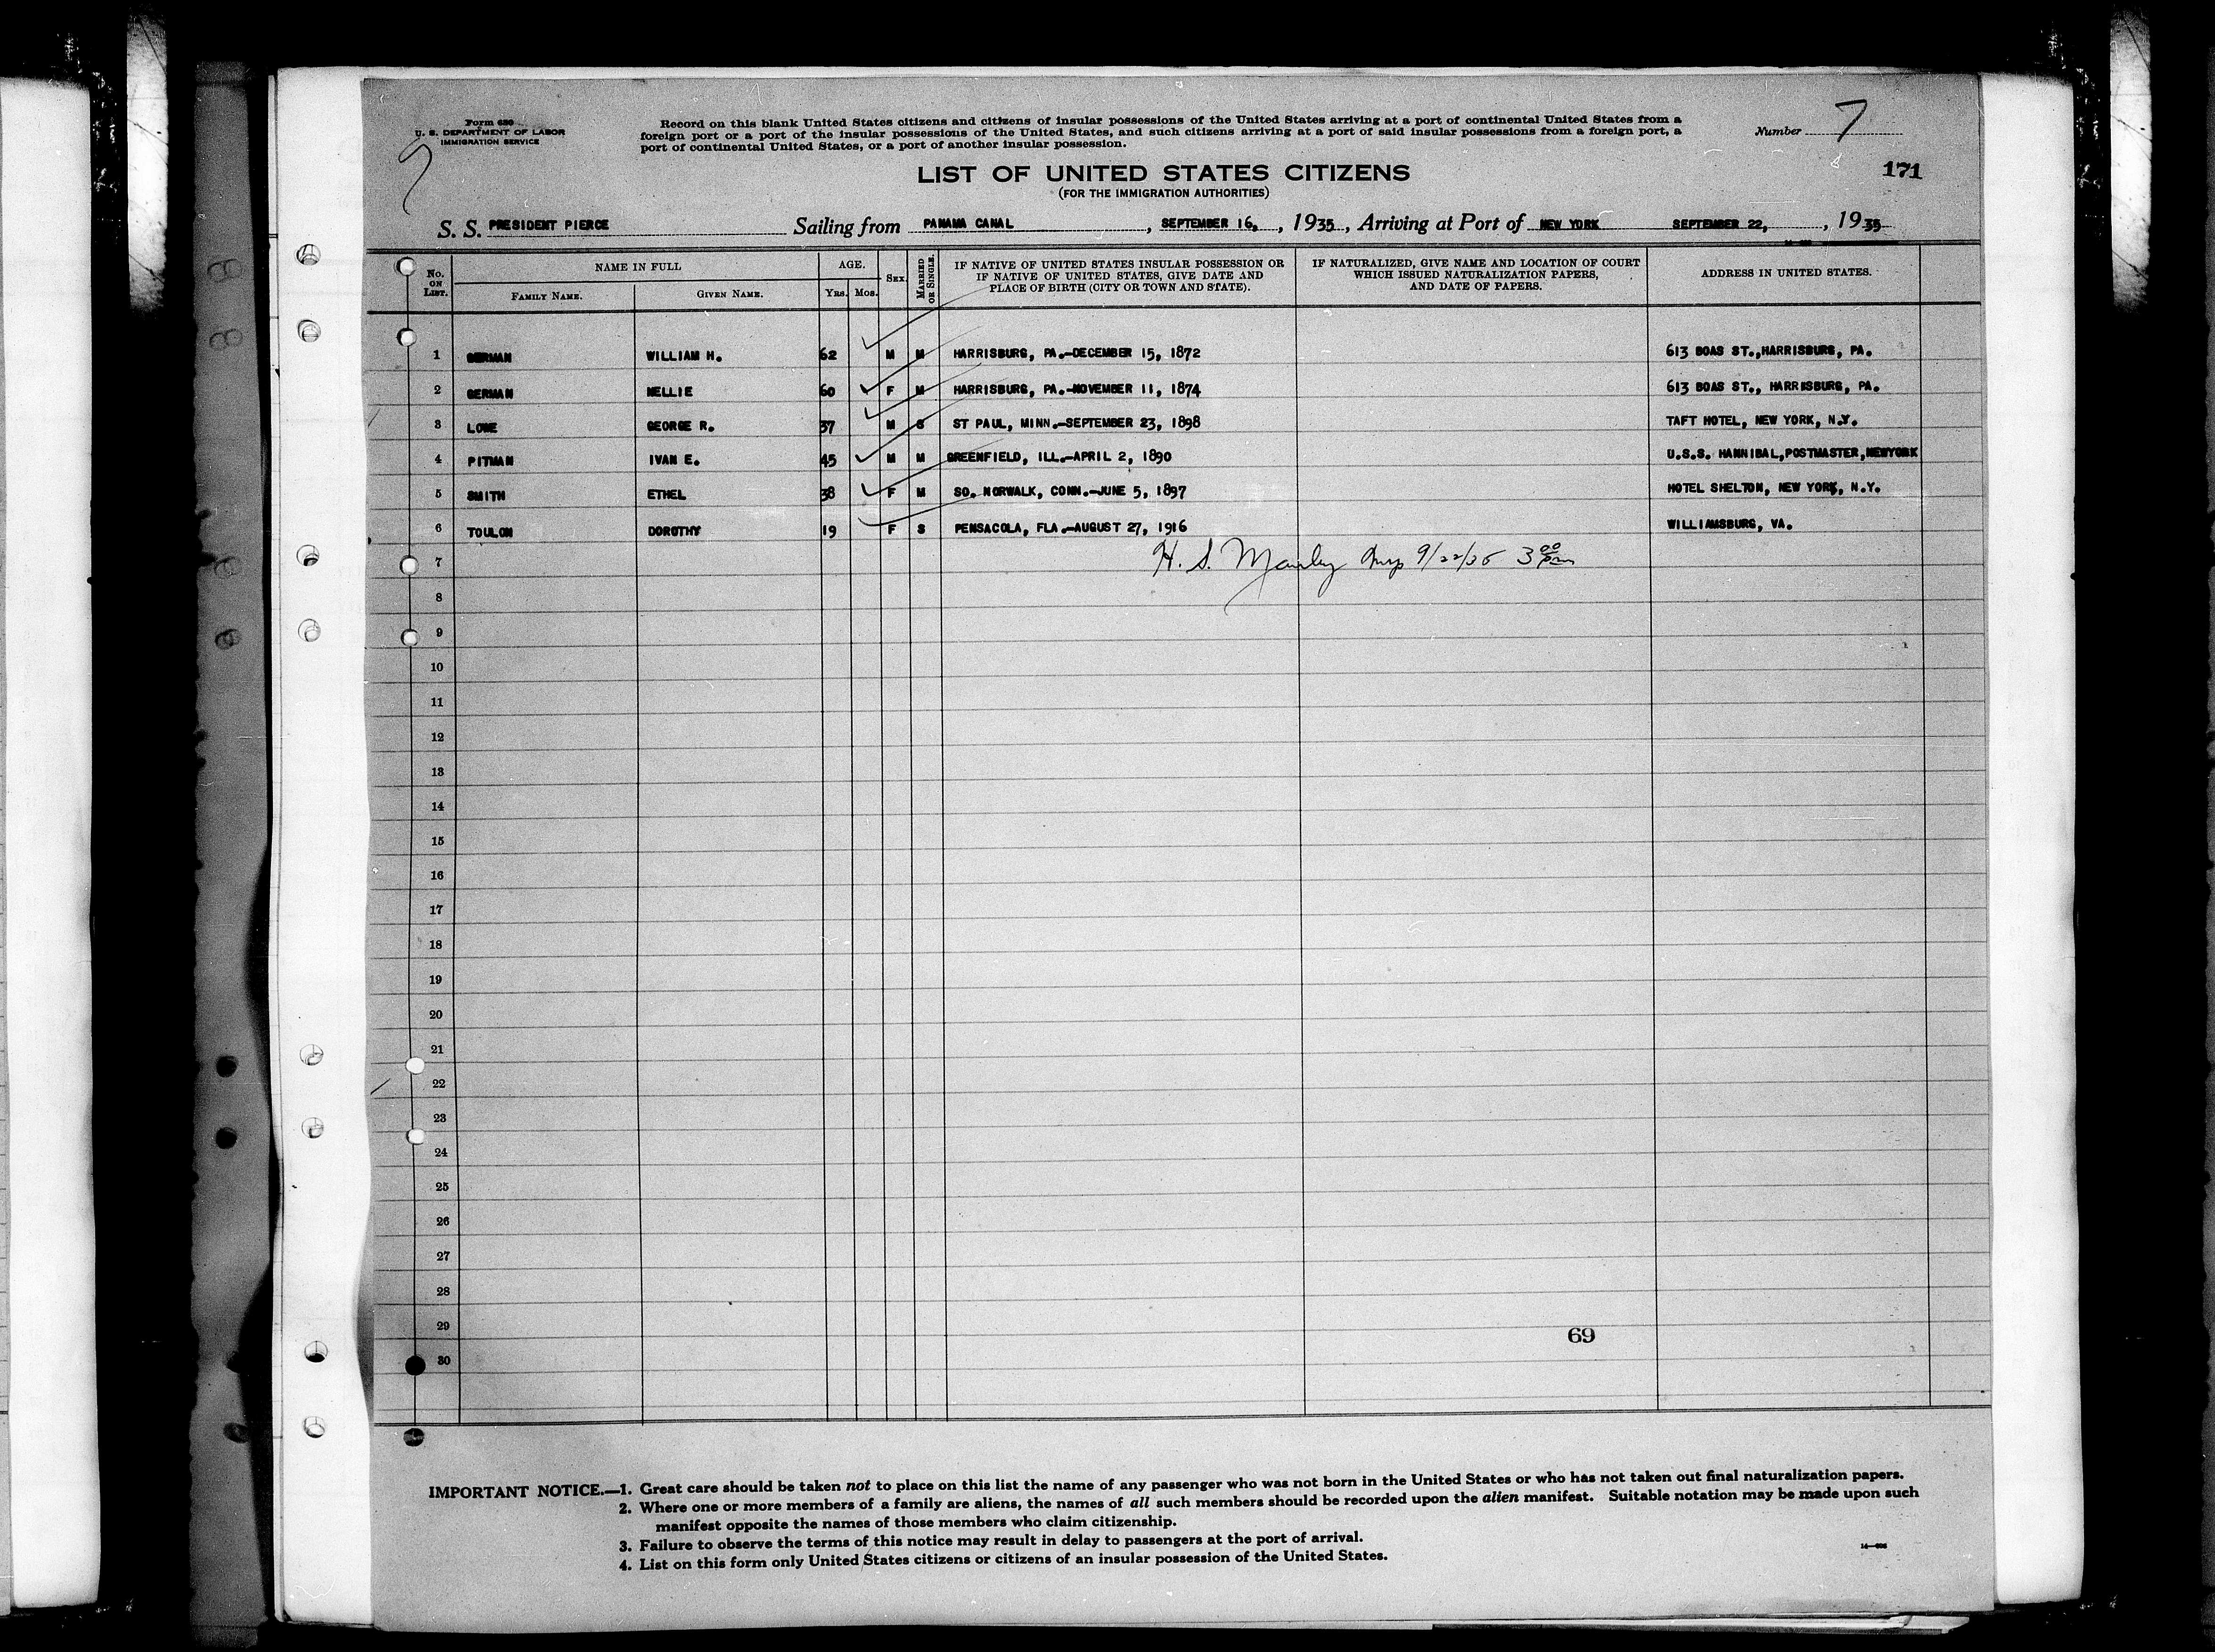 Form 630
U. S. DEPARTMENT OF LABOR
IMMIGRATION SERVICE
Record on this blank United States citizens and citizens of insular possessions of the United States arriving at a port of continental United States from a
foreign port or a port of the insular possessions of the United States, and such citizens arriving at a port of said insular possessions from a foreign port, a
port of continental United States, or a port of another insular possession.
Number 7
171
LIST OF UNITED STATES CITIZENS
(FOR THE IMMIGRATION AUTHORITIES)
S. S. PRESIDENT PIERCE Sailing from PANAMA CANAL, SEPTEMBER 16, , 1935, Arriving at Port of NEW YORK SEPTEMBER 22, , 1935
No. ON LIST. NAME IN FULL AGE. SEX. MARRIED OR SINGLE. IF NATIVE OF UNITED STATES INSULAR POSSESSION OR IF NATIVE OF UNITED STATES, GIVE DATE AND PLACE OF BIRTH (CITY OR TOWN AND STATE). IF NATURALIZED, GIVE NAME AND LOCATION OF COURT WHICH ISSUED NATURALIZATION PAPERS, AND DATE OF PAPERS. ADDRESS IN UNITED STATES.
FAMILY NAME. GIVEN NAME. YRS. MOS.
1 GERMAN WILLIAM H. 62 M M HARRISBURG, PA.-DECEMBER 15, 1872 613 BOAS ST.,HARRISBURG, PA.
2 GERMAN NELLIE 60 F M HARRISBURG, PA.-NOVEMBER 11, 1874 613 BOAS ST., HARRISBURG, PA.
3 LOWE GEORGE R. 37 M S ST PAUL, MINN.-SEPTEMBER 23, 1898 TAFT HOTEL, NEW YORK, N.Y.
4 PITMAN IVAN E. 45 M M GREENFIELD, ILL.-APRIL 2, 1890 U.S.S. HANNIBAL,POSTMASTER,NEWYORK
5 SMITH ETHEL 38 F M SO. NORWALK, CONN.-JUNE 5, 1897 HOTEL SHELTON, NEW YORK, N.Y.
6 TOULON DOROTHY 19 F S PENSACOLA, FLA.-AUGUST 27, 1916 WILLIAMSBURG, VA.
7 H. S. Manley Insp 9/22/35 3 00 pm
8
9
10
11
12
13
14
15
16
17
18
19
20
21
22
23
24
25
26
27
28
29
69
30
IMPORTANT NOTICE.—1. Great care should be taken not to place on this list the name of any passenger who was not born in the United States or who has not taken out final naturalization papers.
2. Where one or more members of a family are aliens, the names of all such members should be recorded upon the alien manifest. Suitable notation may be made upon such
manifest opposite the names of those members who claim citizenship.
3. Failure to observe the terms of this notice may result in delay to passengers at the port of arrival.
4. List on this form only United States citizens or citizens of an insular possession of the United States.